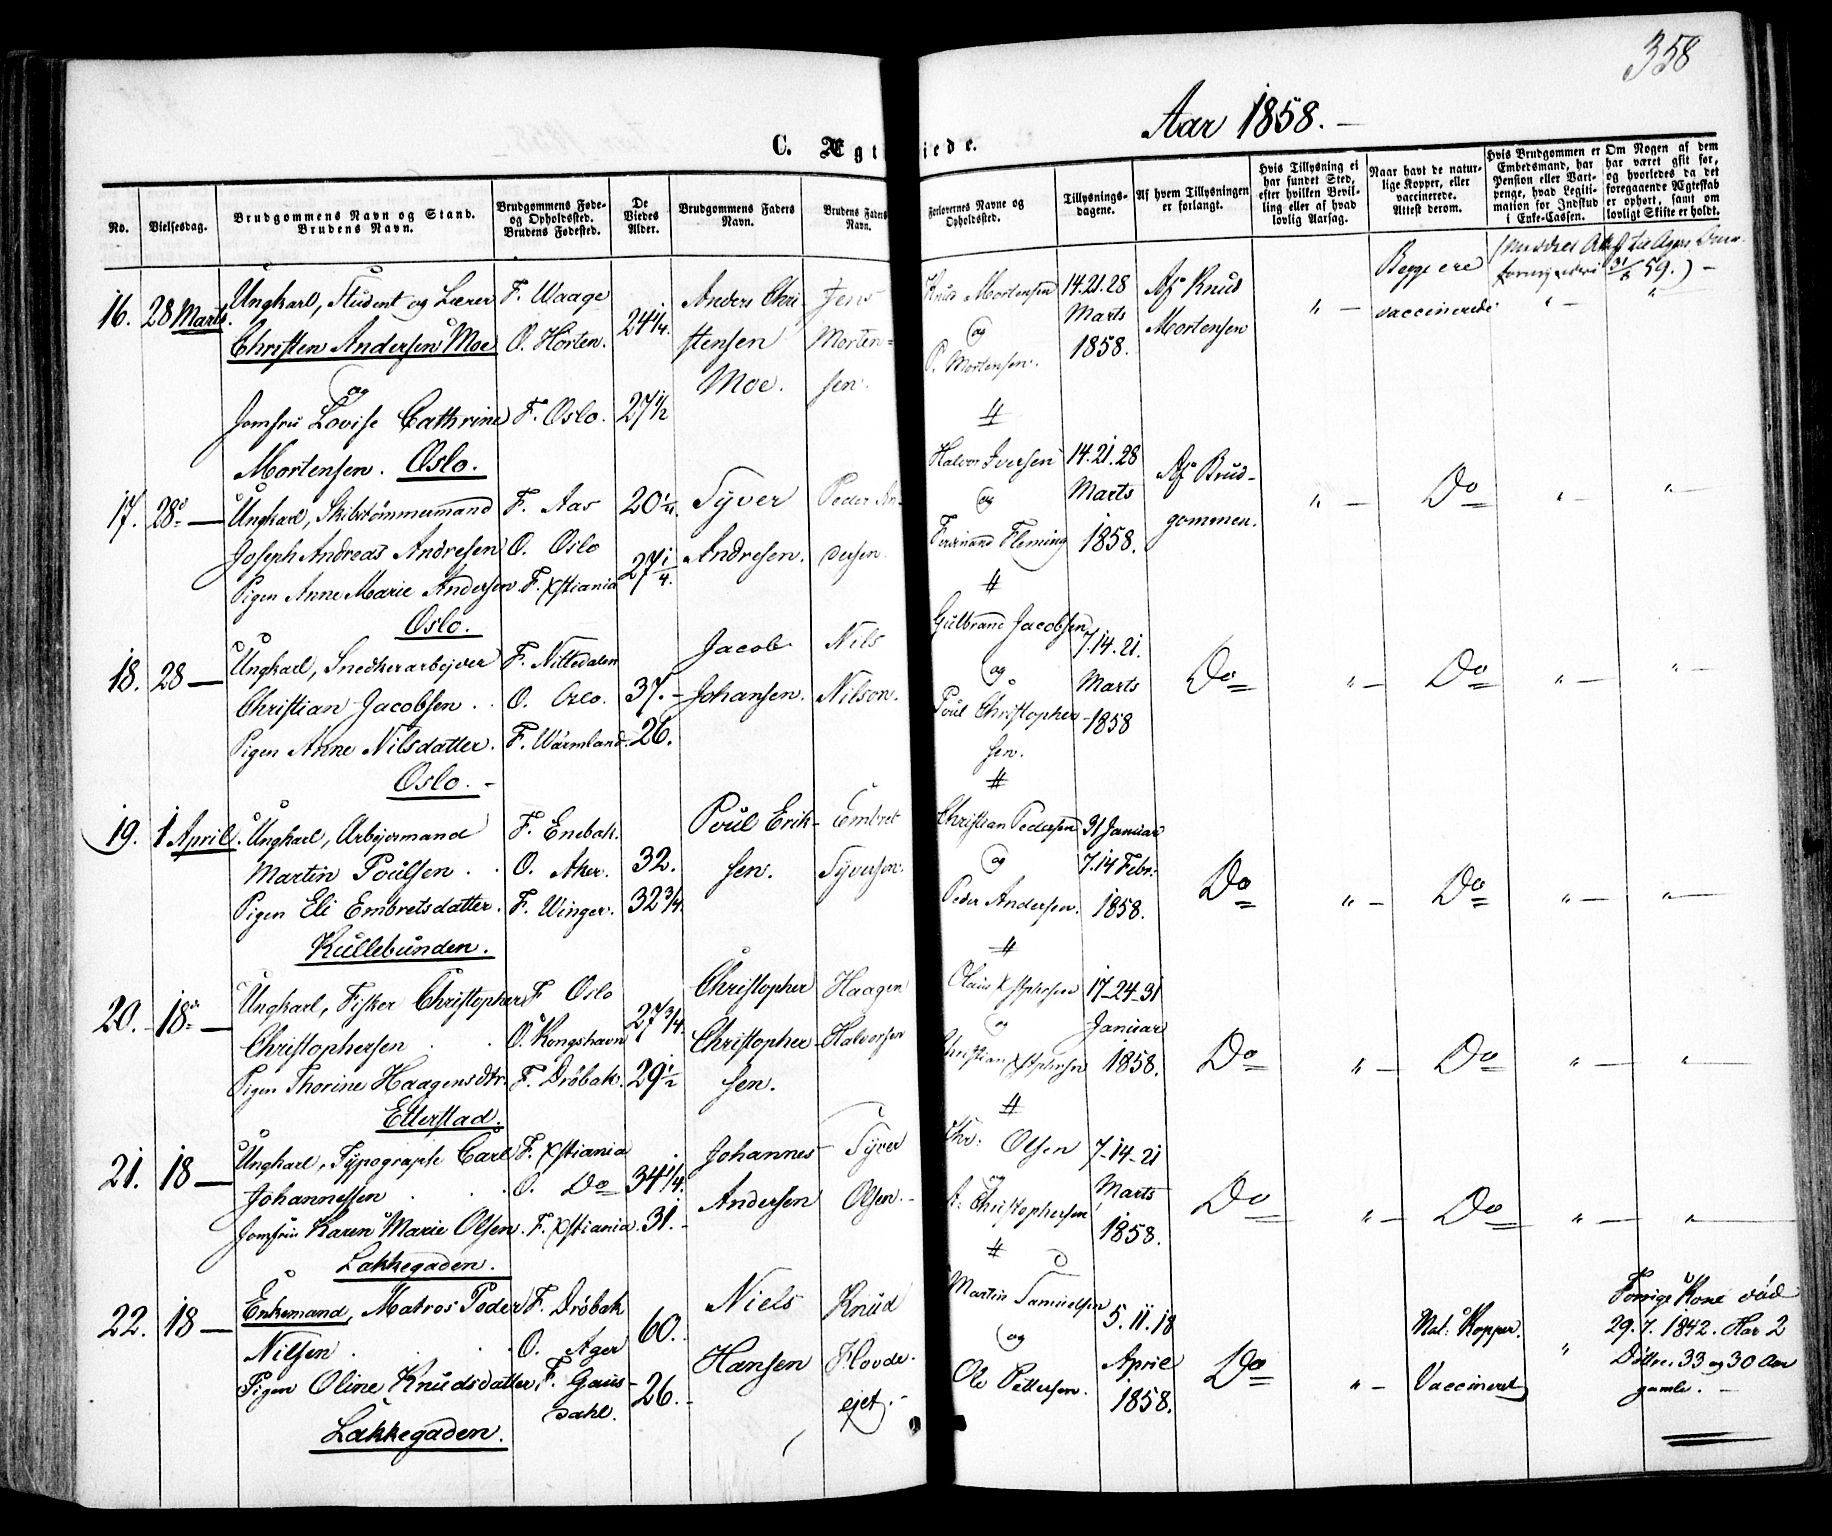 358
Aar 1858.
C. Ægt iede.
No.
Vielsesdag.
Brudgommens Navn og Stand.
Brudens Navn.
Brudgommens Føde-
og Opholdssted.
Brudens Fødested.
De
Viedes
Alder.
Brudgommens Faders
Navn.
Brudens Faders
Navn.
Forlovernes Navne og
Opholdssted.
Tillysnings-
dagene.
Af hvem Tillysningen
er forlangt.
Hvis Tillysning ei
har fundet Sted,
efter hvilken Bevil-
ling eller af hvad
lovlig Aarsag.
Naar havt de natur-
lige Kopper, eller
vaccinerede.
Attest derom.
Hvis Brudgommen er
Embedsmand, har
Pension eller Vart-
penge, hvad Legiti-
mation for Indskud
i Enke-Cassen.
Om Nogen af dem
har været gift før,
og hvorledes da det
foregaaende Ægteskab
er ophørt, samt om
lovligt Skifte er holdt.
16. 28 Marts. Ungkarl, Student og Lærer F. Waage 24 1/4. Anders Chri- Jens
Christen Andersen Moe O. Horten. stensen Morten-
og Moe. sen.
Jomfru Lovise Cathrine F. Oslo. 27 1/2
Mortensen. Oslo.
Knud Mortensen 14. 21. 28 Af Knud " — Begge ere
og Marts Mortensen vaccinerede " — "
P. Mortensen. 1858.
31/5 59.) —
17. 28de — Ungkarl, Skibstømmermand F. Aas 20 Syver Peder An-
Joseph Andreas Andresen O. Oslo Andresen. dersen.
Pigen Anne Marie Andersen F. Xstiania 27 1/4.
Oslo.
Halvor Iversen 14. 21. 28 Af Brud- " — Do " — " —
og Marts gommen.
Ferdinand Fleming 1858.
18. 28 — Ungkarl, Snedkerarbejder F. Nittedalen 37. Jacob Nils
Christian Jacobsen . . O. Oslo. Johansen. Nilson.
Pigen Anne Nilsdatter. F. Wärmland. 26.
Oslo. -
Gulbrand Jacobsen 7. 14. 21. Do " — Do " — " —
og Marts
Poul Christopher- 1858
sen.
19. 1 April. Ungkarl, Arbejdsmand F. Enebak. 32. Poul Erik- Embret
Martin Poulsen . . O. Aker. sen. Syversen.
Pigen Eli Embretsdatter. F. Winger. 32 3/4.
Kullebunden.
Christian Pedersen 31 Januar Do " — Do " — " —
og 7. 14 Febr.
Peder Andersen. 1858.
20. 18de — Ungkarl, Fisker Christopher F. Oslo 27 3/4. Christopher Haagen
Christophersen . . O. Kongshavn Christopher- Halvorsen
Pigen Thorine Haagensdtr. F. Drøbak. 29 1/2 sen.
Etterstad.
Olaus Xstphersen 17-24-31 Do " — Do " — " —
og Januar
Christian Xstphersen 1858.
21. 18 — Ungkarl, Typograph Carl F. Xstiania 34 1/4. Johannes Syver
Johannessen . . . O. Do Andersen Olsen. -
Jomfru Karen Marie Olsen. F. Xstiania. 31. -
Lakkegaden.
Chr: Olsen 7-14-21 Do " — Do " — " —
og Marts
A: Christophersen 1858.
22. 18 — Enkemand, Matros Peder F. Drøbak 60. Niels Knud
Nilsen . . . O. Ager Hansen Flovde-
Pigen Oline Knudsdatter, F. Gaus- 26. - ejet. -
dahl.
Lakkegaden.
Martin Samuelsen 5. 11. 18 Do " — Nat: Kopper. " Forrige Kone død
og April Vaccineret 29. 7. 1842. Har 2
Ole Pettersen. 1858. Døttre. 33 og 30 Aar
gamle. —